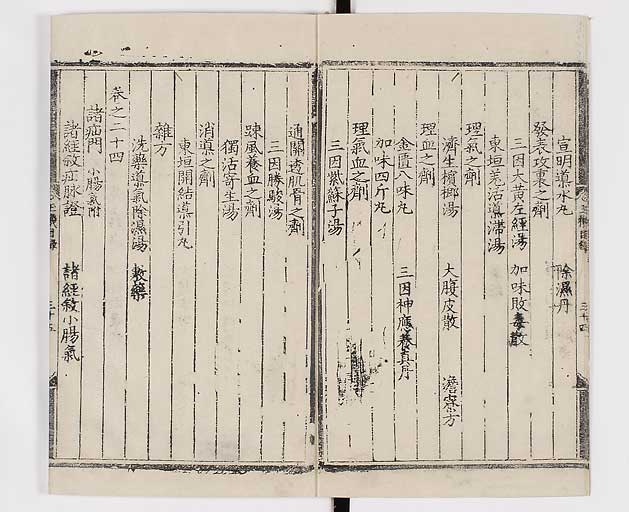 宣明導水丸 除濕丹
發表攻裏之劑
三因大黃左經湯 加味敗毒散
東垣羌活導滯湯
理氣之劑
濟生檳榔湯 大腹皮散 澹寮方
理血之劑
金匱八味丸 三因神應養真丹
加味四斤丸
理氣血之劑
三因紫蘇子湯
通關透肌骨之劑
三因勝駿湯
踈風養血之劑
獨活寄生湯
消導之劑
東垣開結導引丸
雜方
洗藥導氣除濕湯 敷藥
卷之二十四
諸疝門 小腸氣附
諸經敘疝脉證 諸經敘小腸氣